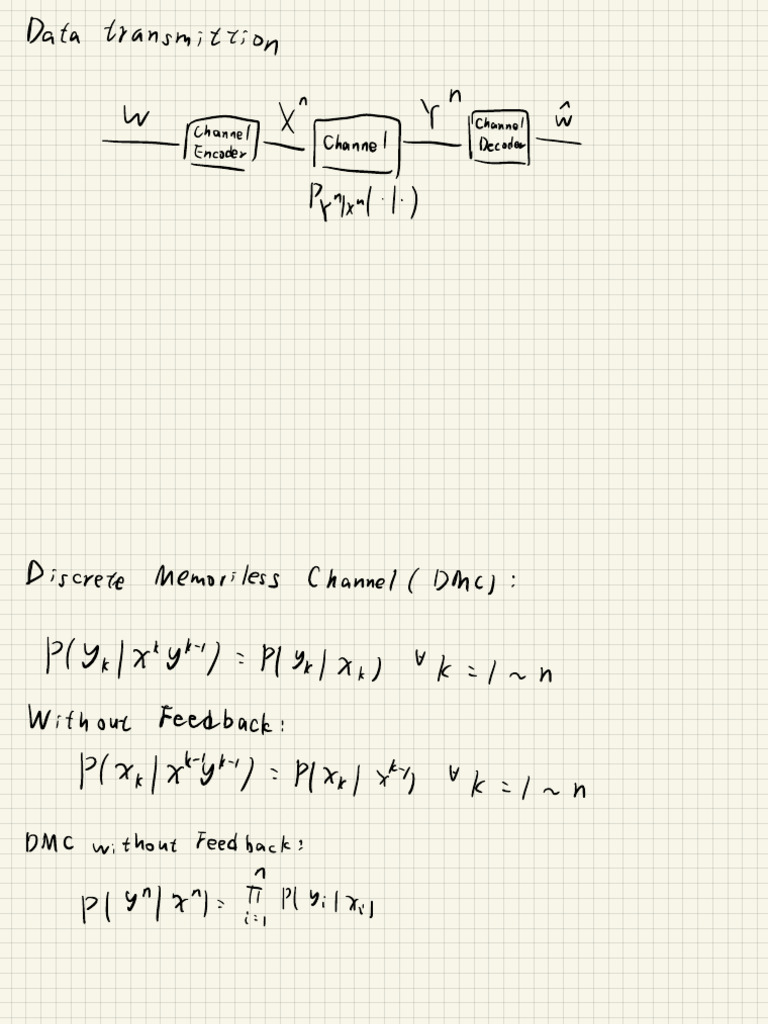 Data transmittion
W Channel Encoder Xⁿ Channel Yⁿ Channel Decoder ŵ
P_{Yⁿ|Xⁿ}(·|·)
Discrete Memoriless Channel (DMC):
P(y_k | x^k y^{k-1}) = P(y_k | x_k) ∀ k = 1 ~ n
Without Feedback:
P(x_k | x^{k-1} y^{k-1}) = P(x_k | x^{k-1}) ∀ k = 1 ~ n
DMC without Feedback:
P(yⁿ | xⁿ) = ∏_{i=1}^{n} P(y_i | x_i)